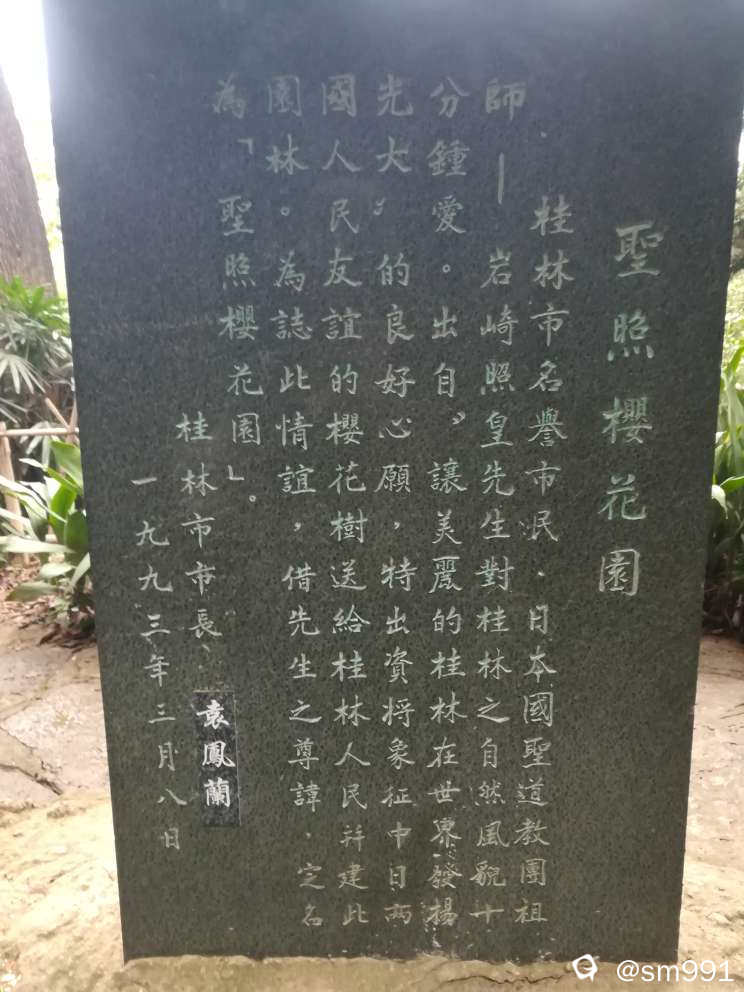 聖照櫻花園
桂林市名譽市民．日本國聖道教團祖
師．—岩崎照皇先生對桂林之自然風貌十
分鍾愛。出自〝讓美麗的桂林在世界發揚
光大〞的良好心願，特出資將象征中日兩
國人民友誼的櫻花樹送給桂林人民并建此
園林。為誌此情誼，借先生之尊諱．定名
為「聖照櫻花園」。
桂林市市長、袁鳳蘭
一九九三年三月八日
@sm991